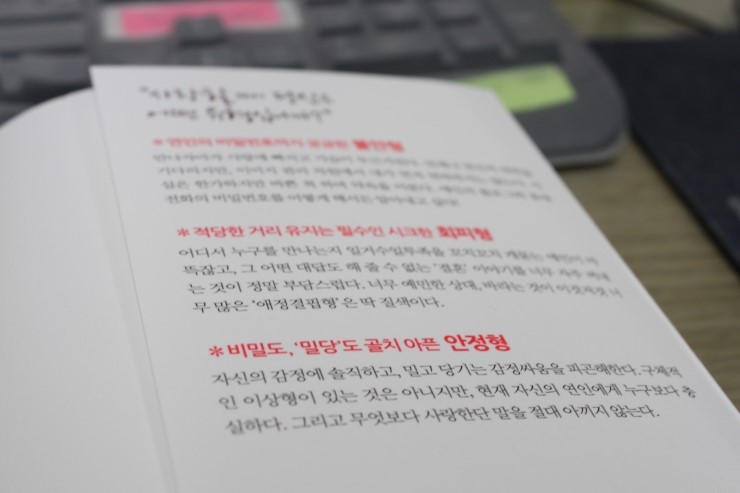 "사랑할 때 당신은
어떤 유형입니까?"
* 연인의 비밀번호까지 궁금한 불안형
전화의 비밀번호를 어떻게 해서든 알아내고 싶다.
* 적당한 거리 유지는 필수인 시크한 회피형
어디서 누구를 만나는지 일거수일투족을 꼬치꼬치 캐묻는 애인이 지
뚝잖고, 그 어떤 대답도 해 줄 수 없는 '결혼' 이야기를 너무 자주 꺼내
는 것이 정말 부담스럽다. 너무 예민한 상대, 바라는 것이 이것저것 너
무 많은 '애정결핍형'은 딱 질색이다.
* 비밀도, '밀당'도 골치 아픈 안정형
자신의 감정에 솔직하고, 밀고 당기는 감정싸움을 피곤해한다. 구체적
인 이상형이 있는 것은 아니지만, 현재 자신의 연인에게 누구보다 충
실하다. 그리고 무엇보다 사랑한단 말을 절대 아끼지 않는다.